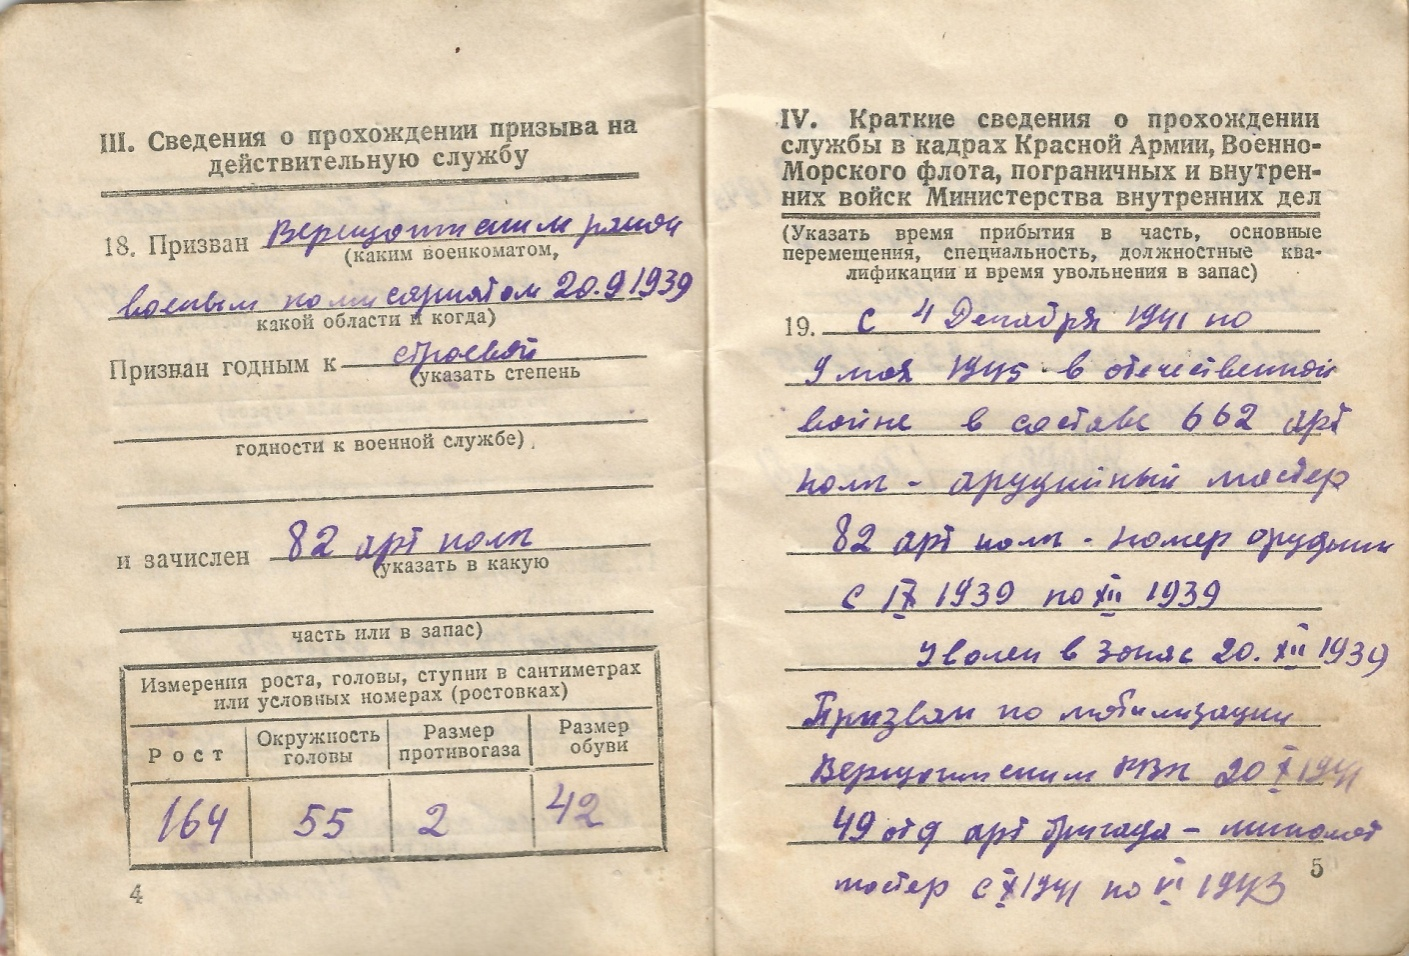 III. Сведения о прохождении призыва на
действительную службу
18. Призван Верещагинским район
(каким военкоматом,
военным комисариатом 20.9 1939
какой области и когда)
Признан годным к строевой
(указать степень
годности к военной службе)
и зачислен 82 арт полк
(указать в какую
часть или в запас)
Измерения роста, головы, ступни в сантиметрах
или условных номерах (ростовках)
Рост Окружность головы Размер противогаза Размер обуви
164 55 2 42
4
IV. Краткие сведения о прохождении
службы в кадрах Красной Армии, Военно-
Морского флота, пограничных и внутрен-
них войск Министерства внутренних дел
(Указать время прибытия в часть, основные
перемещения, специальность, должностные ква-
лификации и время увольнения в запас)
19. С 4 Декабря 1941 по
9 мая 1945 в отечественной
войне в составе 662 арт
полк - арудийный мастер
82 арт полк - номер орудия
с IX 1939 по XII 1939
Уволен в Запас 20. XII 1939
Призван по мобилизации
РВК 20 X 1941
49 отд арт бригада - миномет
мастер с X 1941 по VI 1943
5